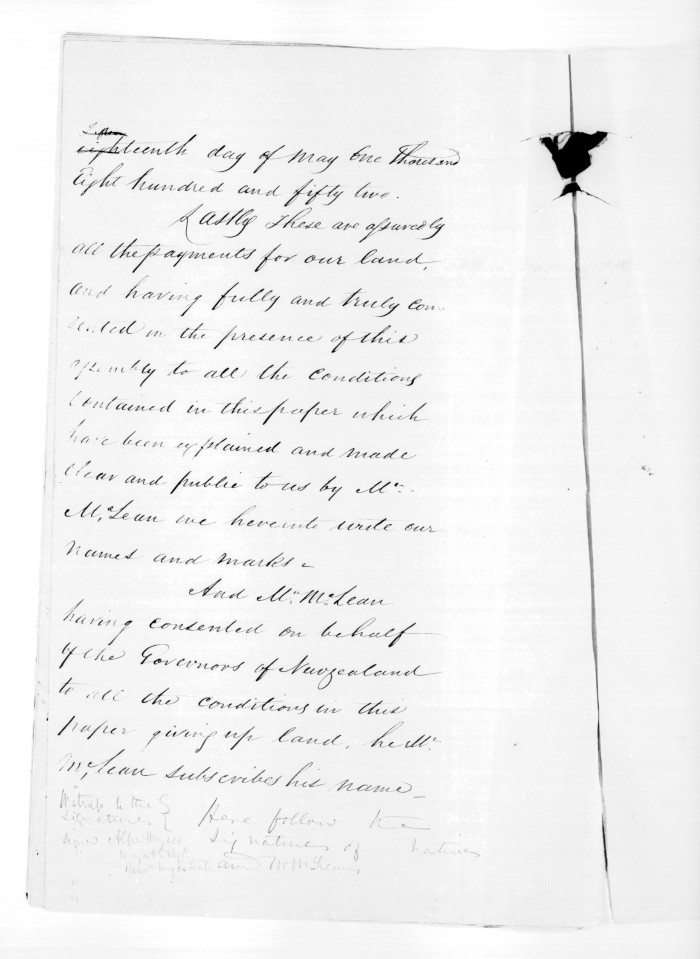 eighteenth day of may One Thousand
Eight hundred and fifty two.
Lastly These are assuredly
all the payments for our land,
and having fully and truly con-
sented in the presence of this
assembly to all the conditions
contained in this paper which
have been explained and made
clear and public to us by Mr.
McLean we hereinto write our
names and marks -
And Mr. McLean
having consented on behalf
of the Governors of Newzealand
to all the conditions in this
paper giving up land, he Mr.
McLean subscribes his name -
Witness to the
signatures
Here follow the
signatures of natives
and Mr McLean